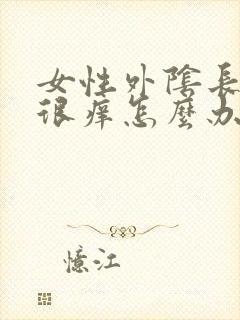 女性外陰長
很痒怎麼办
憶江